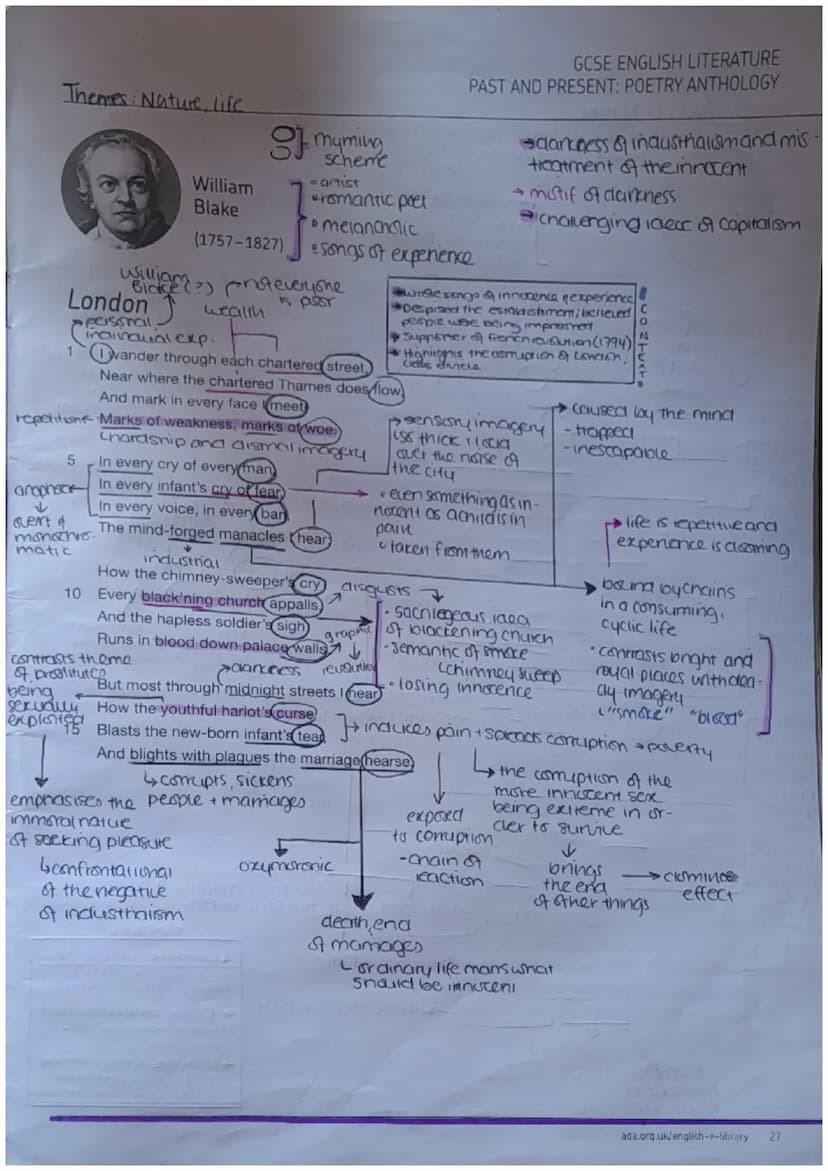 GCSE ENGLISH LITERATURE
PAST AND PRESENT: POETRY ANTHOLOGY
Themes: Nature, life
rhyming
scheme
→ darkness of industrialism and mis-
treatment of the innocent
→ motif of darkness
→ challenging idea of capitalism
William
Blake
(1757–1827)
artist
romantic poet
melancholic
songs of experience
William
Blake (?)
not everyone
is poor
wealth
London
personal,
individual exp.
→ wrote songs of innocence & experience
→ Despised the establishment; believed
people were being imprisoned
→ Supporter of French revolution (1794)
→ Highlights the corruption of London,
class divide
CONTEXT
1 I wander through each chartered street,
Near where the chartered Thames does flow,
And mark in every face I meet
repetition
Marks of weakness, marks of woe.
hardship and dismal imagery
→ sensory imagery
thick
over the noise of
the city
→ caused by the mind
- trapped
- inescapable
5 In every cry of every man,
In every infant's cry of fear,
In every voice, in every ban,
The mind-forged manacles I hear
• even something as in-
nocent as a child is in
pain
taken from them
→ life is repetitive and
experience is
industrial
How the chimney-sweeper's cry
10 Every black'ning church appalls,
And the hapless soldier's sigh
Runs in blood down palace walls
disgusts
graphic
darkness
• sacrilegeous idea
of blackening church
- semantic of smoke
chimney sweep
• losing innocence
bound by chains
in a consuming,
cyclic life
• contrasts bright and
royal places with
imagery
"smoke" "blood"
contrasts theme
of prostitute
being
sexually
exploited
But most through midnight streets I hear
How the youthful harlot's curse
15 Blasts the new-born infant's tear,
And blights with plagues the marriage hearse.
→ induces pain + spreads corruption → poverty
↳ corrupts, sickens
people + marriages
emphasises the
immoral nature
of seeking pleasure
↳ confrontational
of the negative
of industrialism
oxymoronic
exposed
to corruption
- chain of
reaction
↳ the corruption of the
more innocent sex
being extreme in or-
der to survive
brings
the end
of other things
→ dominoe
effect
death, end
of marriages
↳ ordinary life mars what
should be innocent
aqa.org.uk/english-e-library 27